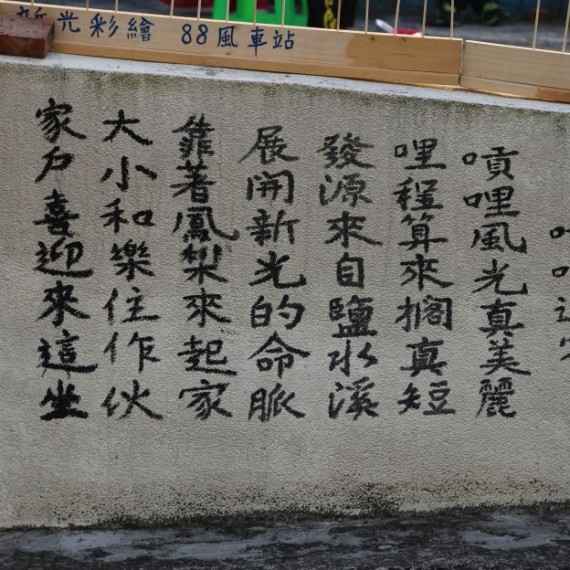 新光彩繪 88風車站
嗊哩風光真美麗
哩程算來擱真短
發源來自鹽水溪
展開新光的命脈
靠著鳳梨來起家
大小和樂住作伙
家戶喜迎來這坐